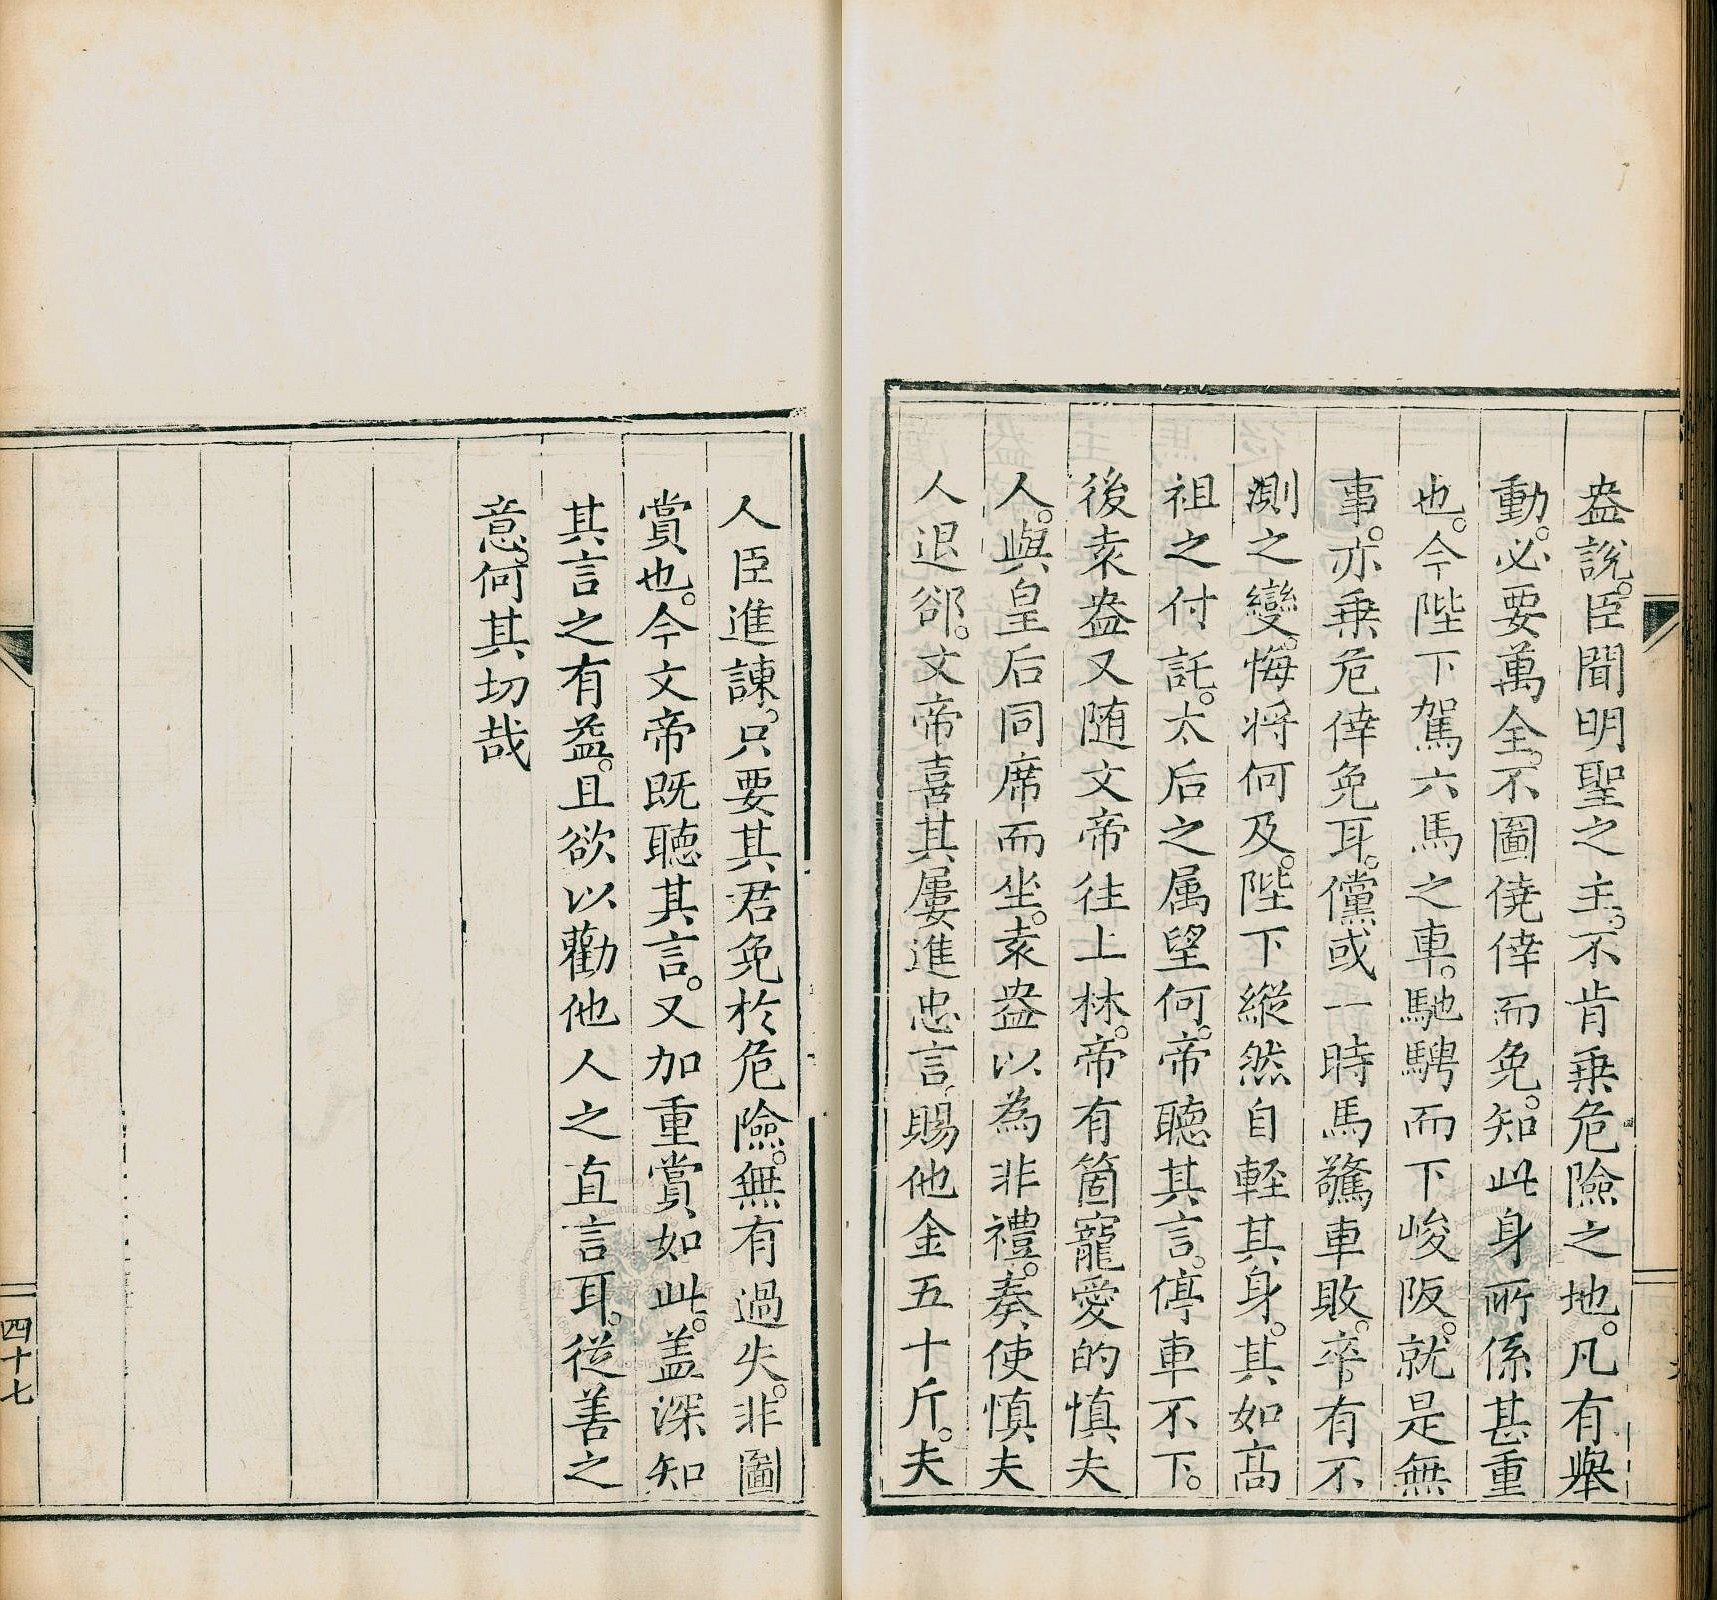 盎說。臣聞明聖之主。不肯乗危險之地。凡有舉
動。必要萬全。不圖僥倖而免。知此身所係甚重
也。今陛下駕六馬之車。馳騁而下峻阪。就是無
事。亦乗危倖免耳。儻或一時馬驚車敗。卒有不
測之變。悔將何及。陛下縱然自輕其身。其如高
祖之付託。太后之属望何。帝聽其言。停車不下。
後袁盎又随文帝往上林。帝有箇寵愛的慎夫
人。與皇后同席而坐。袁盎以為非禮。奏使慎夫
人退郤。文帝喜其屢進忠言。賜他金五十斤。夫
人臣進諫。只要其君免於危險。無有過失。非圖
賞也。今文帝既聽其言。又加重賞如此。盖深知
其言之有益。且欲以勸他人之直言耳。從善之
意。何其切哉
四十七